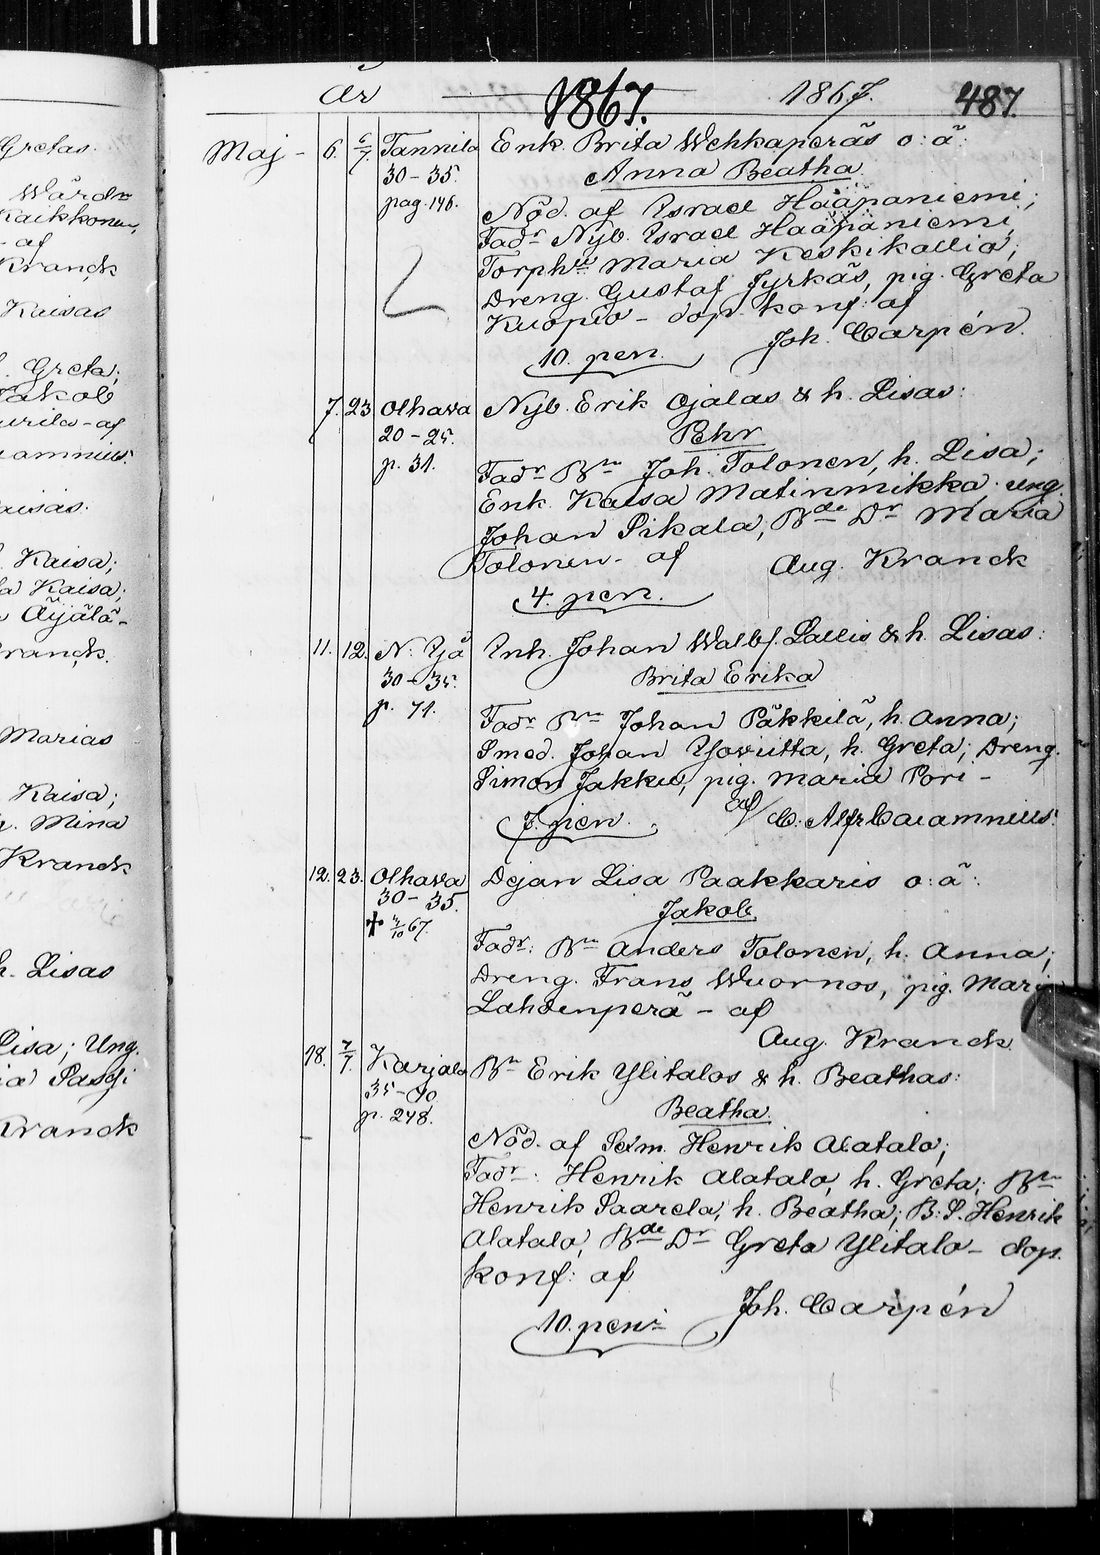 Gretas.
Wärdn
Kaikkonen,
- af
Kranck
Kaisas
Greta;
Jakob
- af
Kaisa;
Kaisa;
Äijälä -
Kranck.
Marias
Kaisa;
Mina
Kranck
h. Lisas
Lisa; Ung.
Kranck
År 1867. 1867. 487.
Maj - 6. 6/7. Tannila Enk. Brita Wehkaperäs o: ä:
30-35. Anna Beatha
pag. 146. Nöd. af Israel Haapaniemi;
Fadr Nyb. Israel Haapaniemi,
Torphu Maria Keskikallio;
Dreng. Gustaf Jyrkäs, pig. Greta
Kuopio - dop. konf: af
10. pen. Joh. Carpén.
7. 23 Olhava Nyb. Erik Ojalas & h. Lisas:
20-25. Pehr
p. 31. Fadr Bn Joh. Tolonen, h. Lisa;
Enk. Kaisa Matinmikka, ung.
Johan Pikala, Bde Dr Maria
Tolonen - af Aug. Kranck
4. pen.
11. 12. N. Ijå Inh. Johan Walbf. Lallis & h. Lisas:
30-35. Brita Erika
p. 71. Fadr Bn Johan Päkkilä, h. Anna;
Smed. Johan Yovutta, h. Greta; Dreng.
Simon Jakku, pig. Maria Pori -
7. pen. af C. Alfr Calamnius.
12. 23. Olhava Dejan Lisa Paakkaris o: ä:
30-35. Jakob.
✝ 3/10 67. Fadr: Bn Anders Tolonen, h. Anna;
Dreng. Frans Wuornos, pig. Maria
Lahdenperä - af
Aug. Kranck.
18. 7/7. Karjala Bn Erik Ylitalos & h. Beathas:
35-40. Beatha.
p. 248. Nöd. af Sexm. Henrik Alatalo;
Fadr: Henrik Alatalo, h. Greta; Bn
Henrik Saarela, h. Beatha; B. S. Henrik
Alatalo, Bde Dr Greta Ylitalo - dop.
konf: af
10. pen: Joh. Carpén